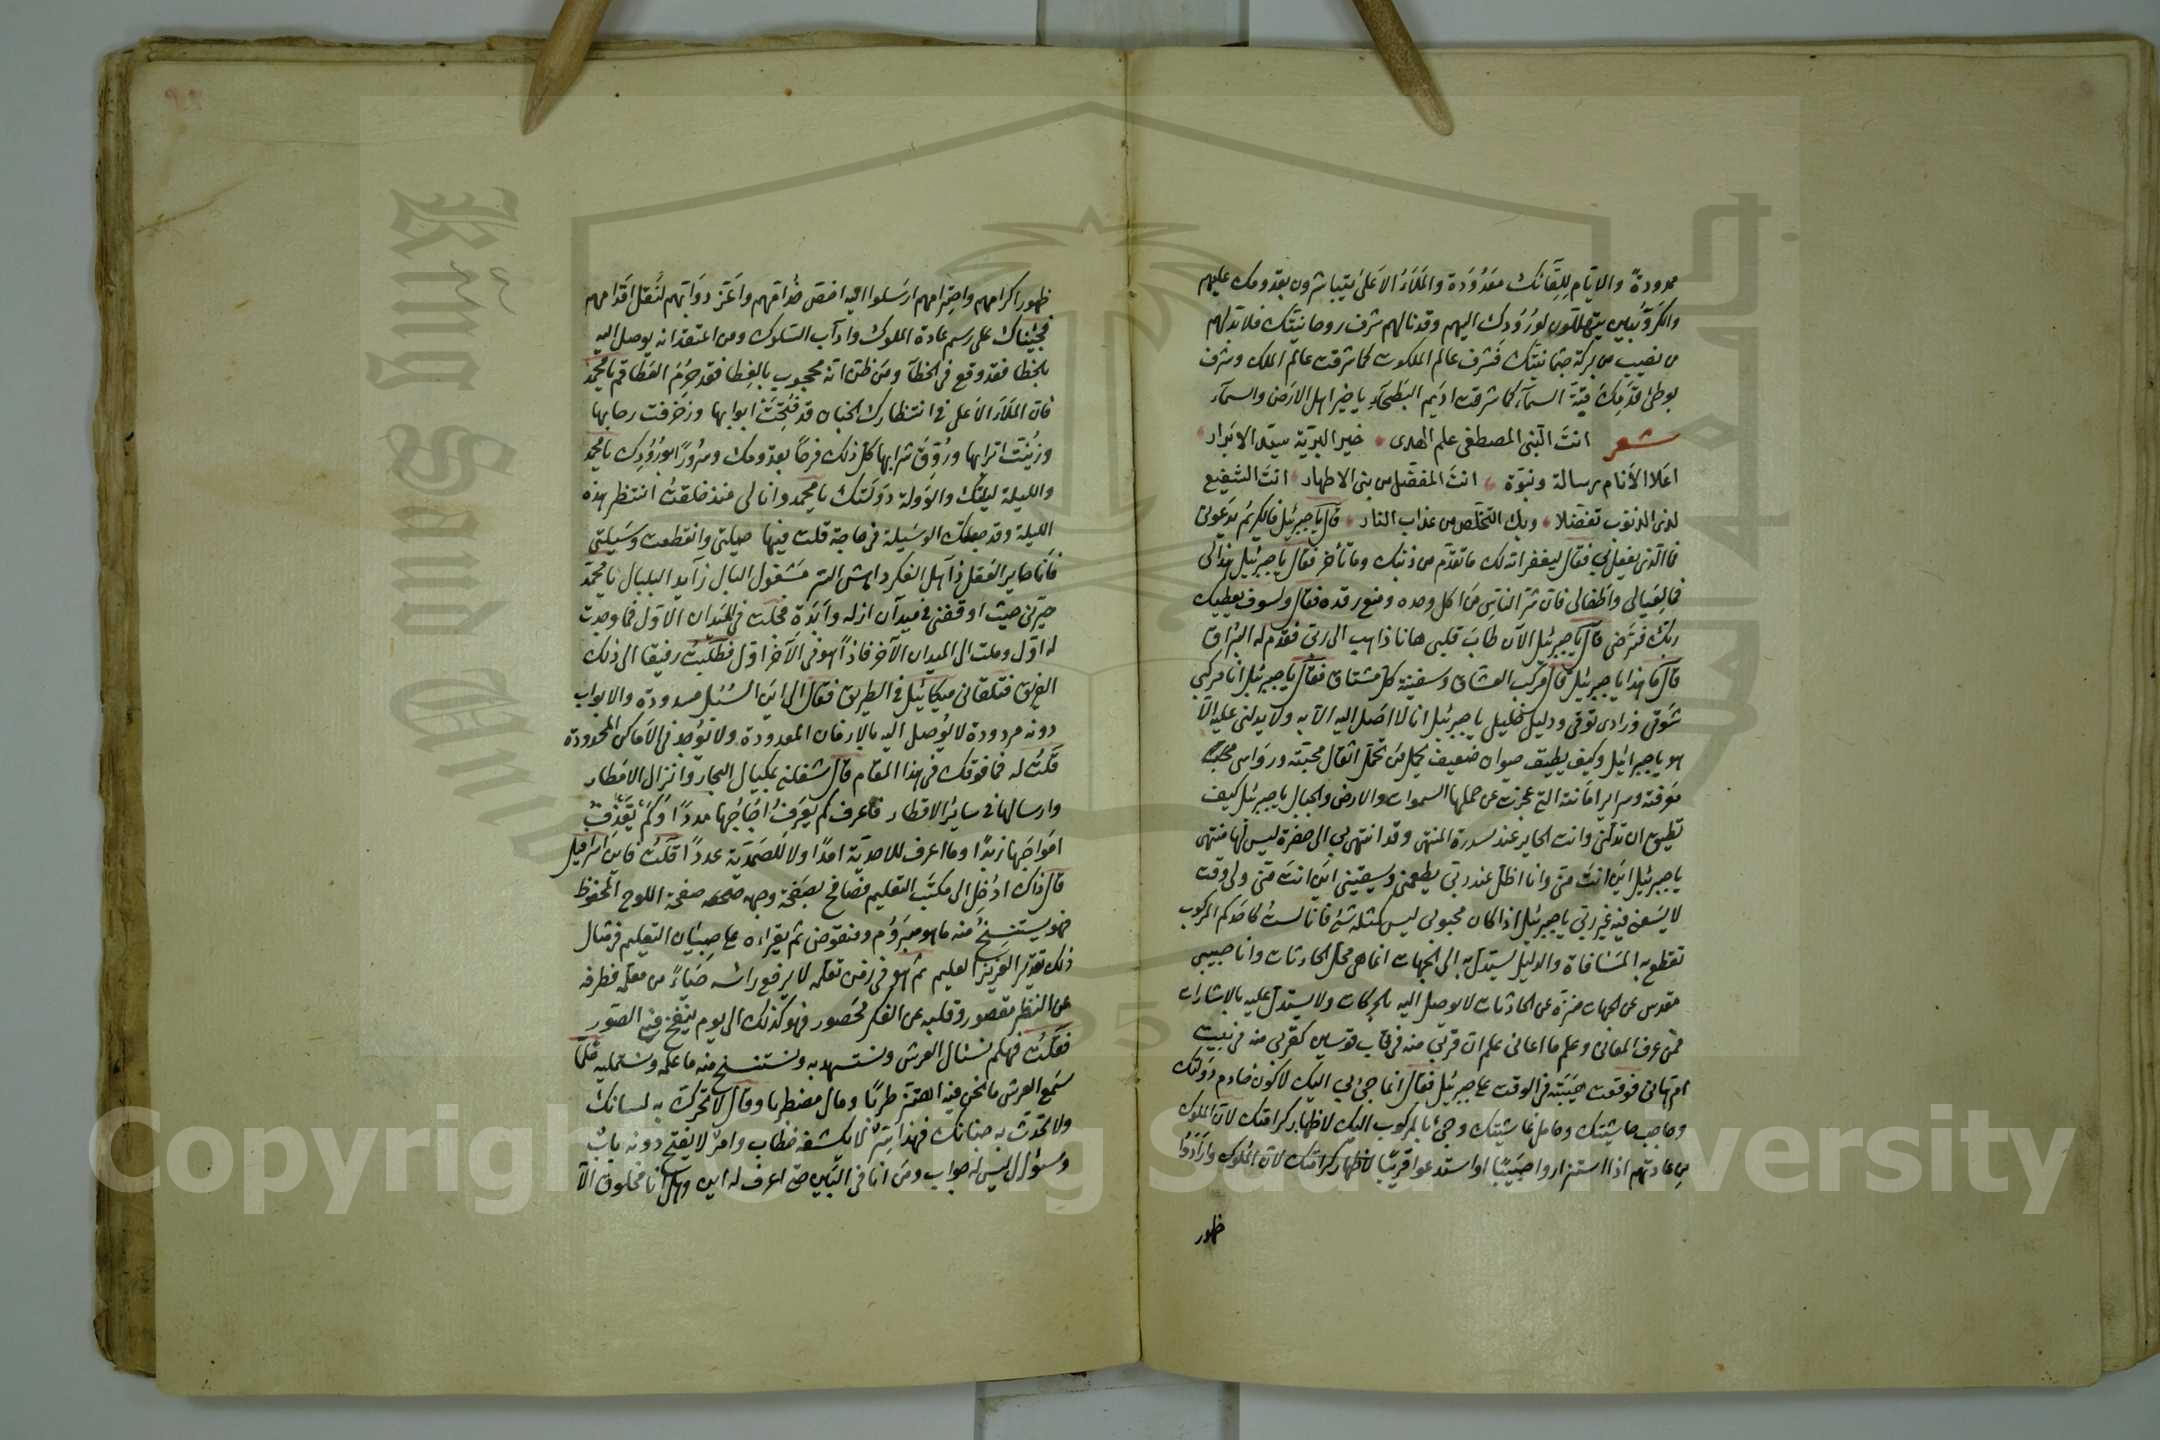 ممدودة والايام للقائك معدودة والملاء الاعلى يتباشرون بقدومك عليهم
والكروبيين يتهللون لورودك اليهم وقد نالهم شرف روحانيتك فلا بد لهم
من نصيب من بركة جثمانيتك فشرف عالم الملكوت كما شرفت عالم الملك وشرف
بوطئ قدمك قبة السماء كما شرفت اديم البطحاء يا خير اهل الارض والسماء
شعر انت النبي المصطفى علم الهدى خير البرية سيد الابرار
اعلا الانام رسالة ونبوة انت المفضل من بني الاطهار انت الشفيع
لذي الذنوب تفضلا وبك التخلص من عذاب النار قال يا جبرئيل فالكريم يدعوني
فما الذي يفعل بي فقال ليغفر الله لك ما تقدم من ذنبك وما تأخر فقال يا جبرئيل هذا لي
فما لعيالي واطفالي فان شر الناس من اكل وحده ومنع رفده فقال ولسوف يعطيك
ربك فترضى قال يا جبرئيل الآن طاب قلبي ها انا ذاهب الى ربي فقدم له البراق
قال ما هذا يا جبرئيل قال مركب العشاق وسفينة كل مشتاق فقال يا جبرئيل انا مركبي
شوقي وزادي توقي ودليلي خليل يا جبرئيل انا لا اصل اليه الا به ولا يدلني عليه الا
هو يا جبرائيل وكيف يطيق حيوان ضعيف يحمل من تحمل اثقال محبته ورواسى
معرفته وسراير امانته التي عجزت عن حملها السموات والارض والجبال يا جبرئيل كيف
تطيق ان تدلني وانت الحاير عند سدرة المنتهى وقد انتهى بي الى حضرة ليس لها منتهى
يا جبرئيل اين انت مني وانا اظل عند ربي يطعمني ويسقيني اين انت مني ولي وقت
لا يسعني فيه غير ربي يا جبرئيل اذا كان محبوبي ليس كمثله شئ فانا لست كاحدكم المركوب
تقطع به المسافاة والدليل يستدل به الى الجهات انما هي محل الحادثات وانا حبيبي
مقدس عن الجهات منزه عن الحادثات لا يوصل اليه بالحركات ولا يستدل عليه بالاشارات
فمن عرف المعاني وعلم ما اعاني علم ان قربي منه في قاب قوسين كقربي منه في بيت
ام هاني فوقعت هيبته في الوقت على جبرئيل فقال انما جئ بي اليك لاكون خادم دولتك
وصاحب حاشيتك وحامل غاشيتك وجئ بالمركوب اليك لاظهار كرامتك لان الملوك
من عادتهم اذا استزاروا حبيبا او استدعوا قريبا لاظهار كرامتك لان الملوك وارادوا
ظهور
ظهور اكرامهم واحترامهم ارسلوا اليه اخص خدامهم واعز دوابهم لنقل اقدامهم
فجئناك على رسم عادة الملوك وآداب السلوك ومن اعتقد انه يوصل اليه
بالخطا فقد وقع في الخطأ ومن ظن انه محجوب بالغطا فقد حرم العطا قم يا محمد
فان الملاء الاعلى في انتظارك الجنان قد فتحت ابوابها وزخرفت رحابها
وزينت اترابها وروق شرابها كل ذلك فرحا بقدومك وسرورا بورودك يا محمد
والليلة ليلتك والدولة دولتك يا محمد وانا لي منذ خلقت انتظر هذه
الليلة وقد جعلتك الوسيلة في حاجة قلت فيها حيلتي وانقطعت وسيلتي
فانا حاير العقل ذاهل الفكر داهش السر مشغول البال زايد البلبال يا محمد
حيرتي حيث اوقفني في ميدان ازله وابده فجلت في الميدان الاول فما وجدت
له اول وملت الى الميدان الآخر فاذا هو في الآخر اول فطلبت رفيقا الى ذلك
الفريق فتلقاني ميكائيل في الطريق فقال الى اين السبل مسدودة والابواب
دونه مردودة لا يوصل اليه بالازمان المعدودة ولا يوجد في الاماكن المحدودة
قلت له فما فوقك في هذا المقام قال شغلني بمكيال البحار وانزال الامطار
وارسالها في ساير الاقطار فاعرف كم يغرف اجاجها مددا وكم يقذف
امواجها زبدا وما اعرف للاحدية امدا ولا للصمدية عددا قلت فاين اسرافيل
قال ذاك ادخل الى مكتب التعليم فصافح بصفحة وجهه صفحة اللوح المحفوظ
فهو يستنسخ منه ما هو مبروم ومنقوض ثم يقراءه على صبيان التعليم في مثال
ذلك تقدير العزيز العليم ثم هو في زمن تعلمه لا يرفع راسه حياء من معلمه فطرفه
عن النظر مقصور وقلبه عن الفكر محصور فهو كذلك الى يوم ينفخ في الصور
فقلت فهلم نسئال العرش ونستهديه ونستنسخ منه ما علمه ونستمليه فلما
سمع العرش ما نحن فيه اهتز طربا ومال مضطربا وقال لا تحرك به لسانك
ولا تحدث به جنانك فهذا سر لا يكشفه خطاب وامر لا يفتح دونه باب
وسؤال ليس له جواب ومن انا في البين حتى اعرف له اين وهل انا مخلوق الا